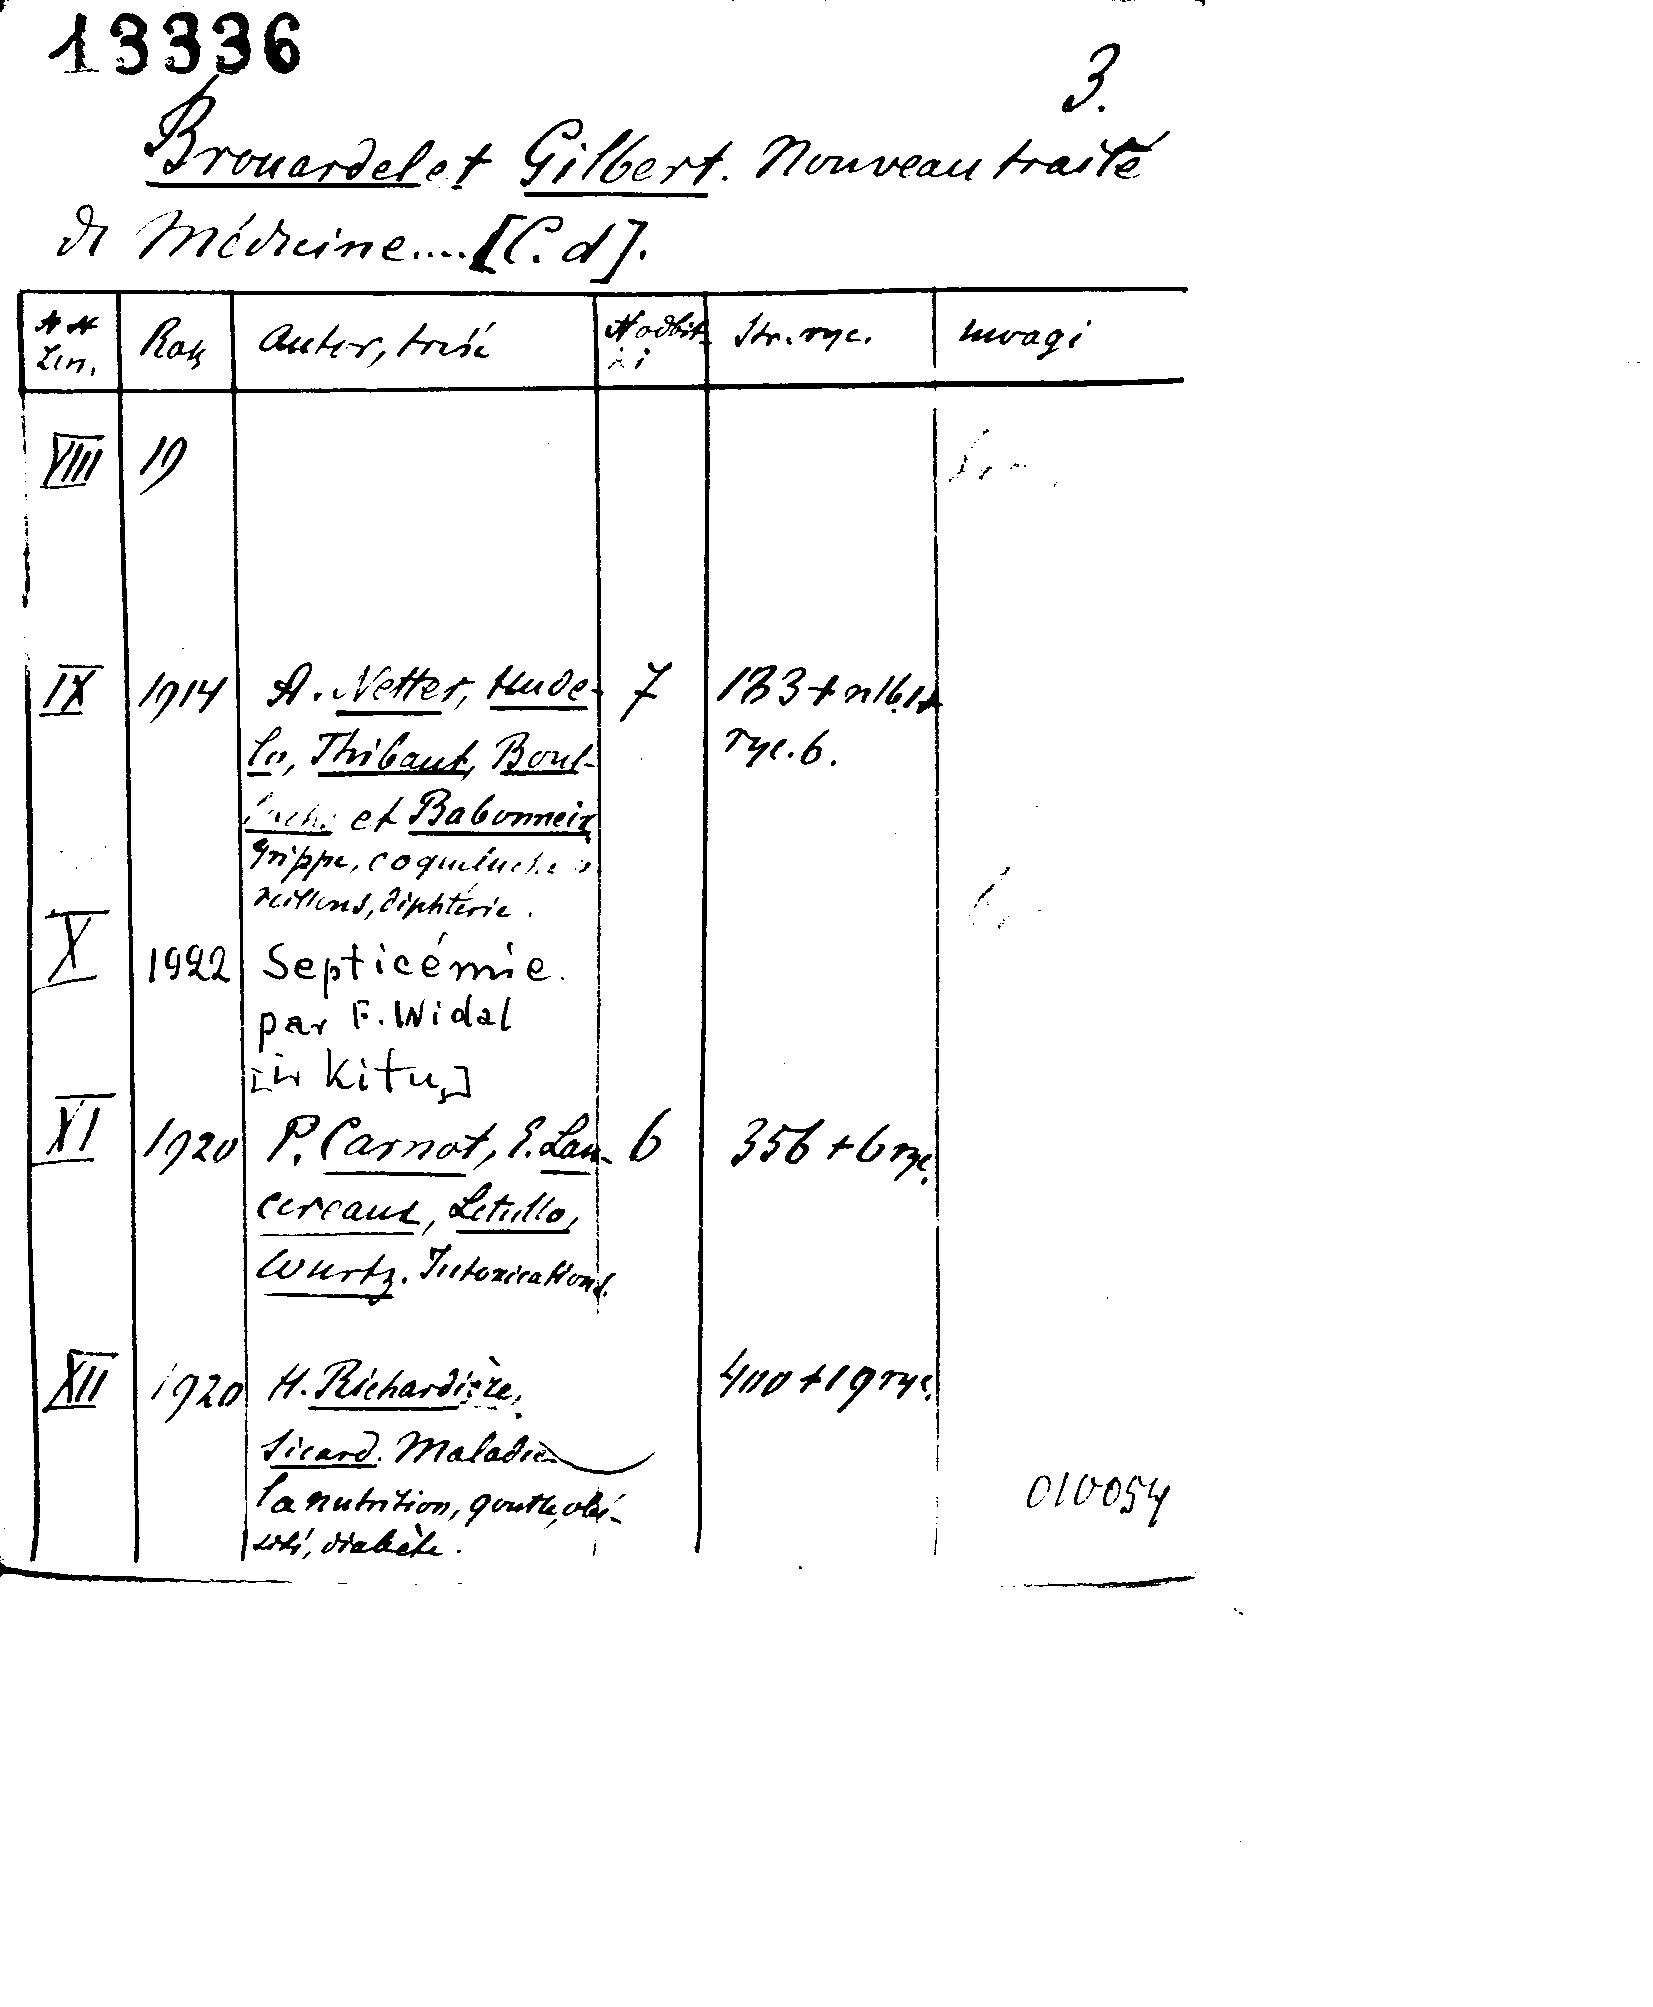 13336
3.
Brouardel et Gilbert. Nouveau traité
de Médicine.... [C. d].
NN Zen. Rok Autor, treść N odbit- ki Str. ryc. Uwagi
VIII 19
IX 1914 A. Netter, Hude- 7 183 +
lo, Thibaut, Boul- ryc. 6.
et Babonneix
Grippe, coqueluche
reillons, diphtérie.
X 1922 Septicémie.
par F. Widal
Kitu
XI 1920 P. Carnot, E. Lan- 6 356 + 6 ryc.
cereaux, Letulle,
Wurtz. Intoxications.
XII 1920 H. Richardière, 400 + 19 ryc.
Sicard. Maladie
la nutrition, goutte, obé-
sité, diabète.
010054